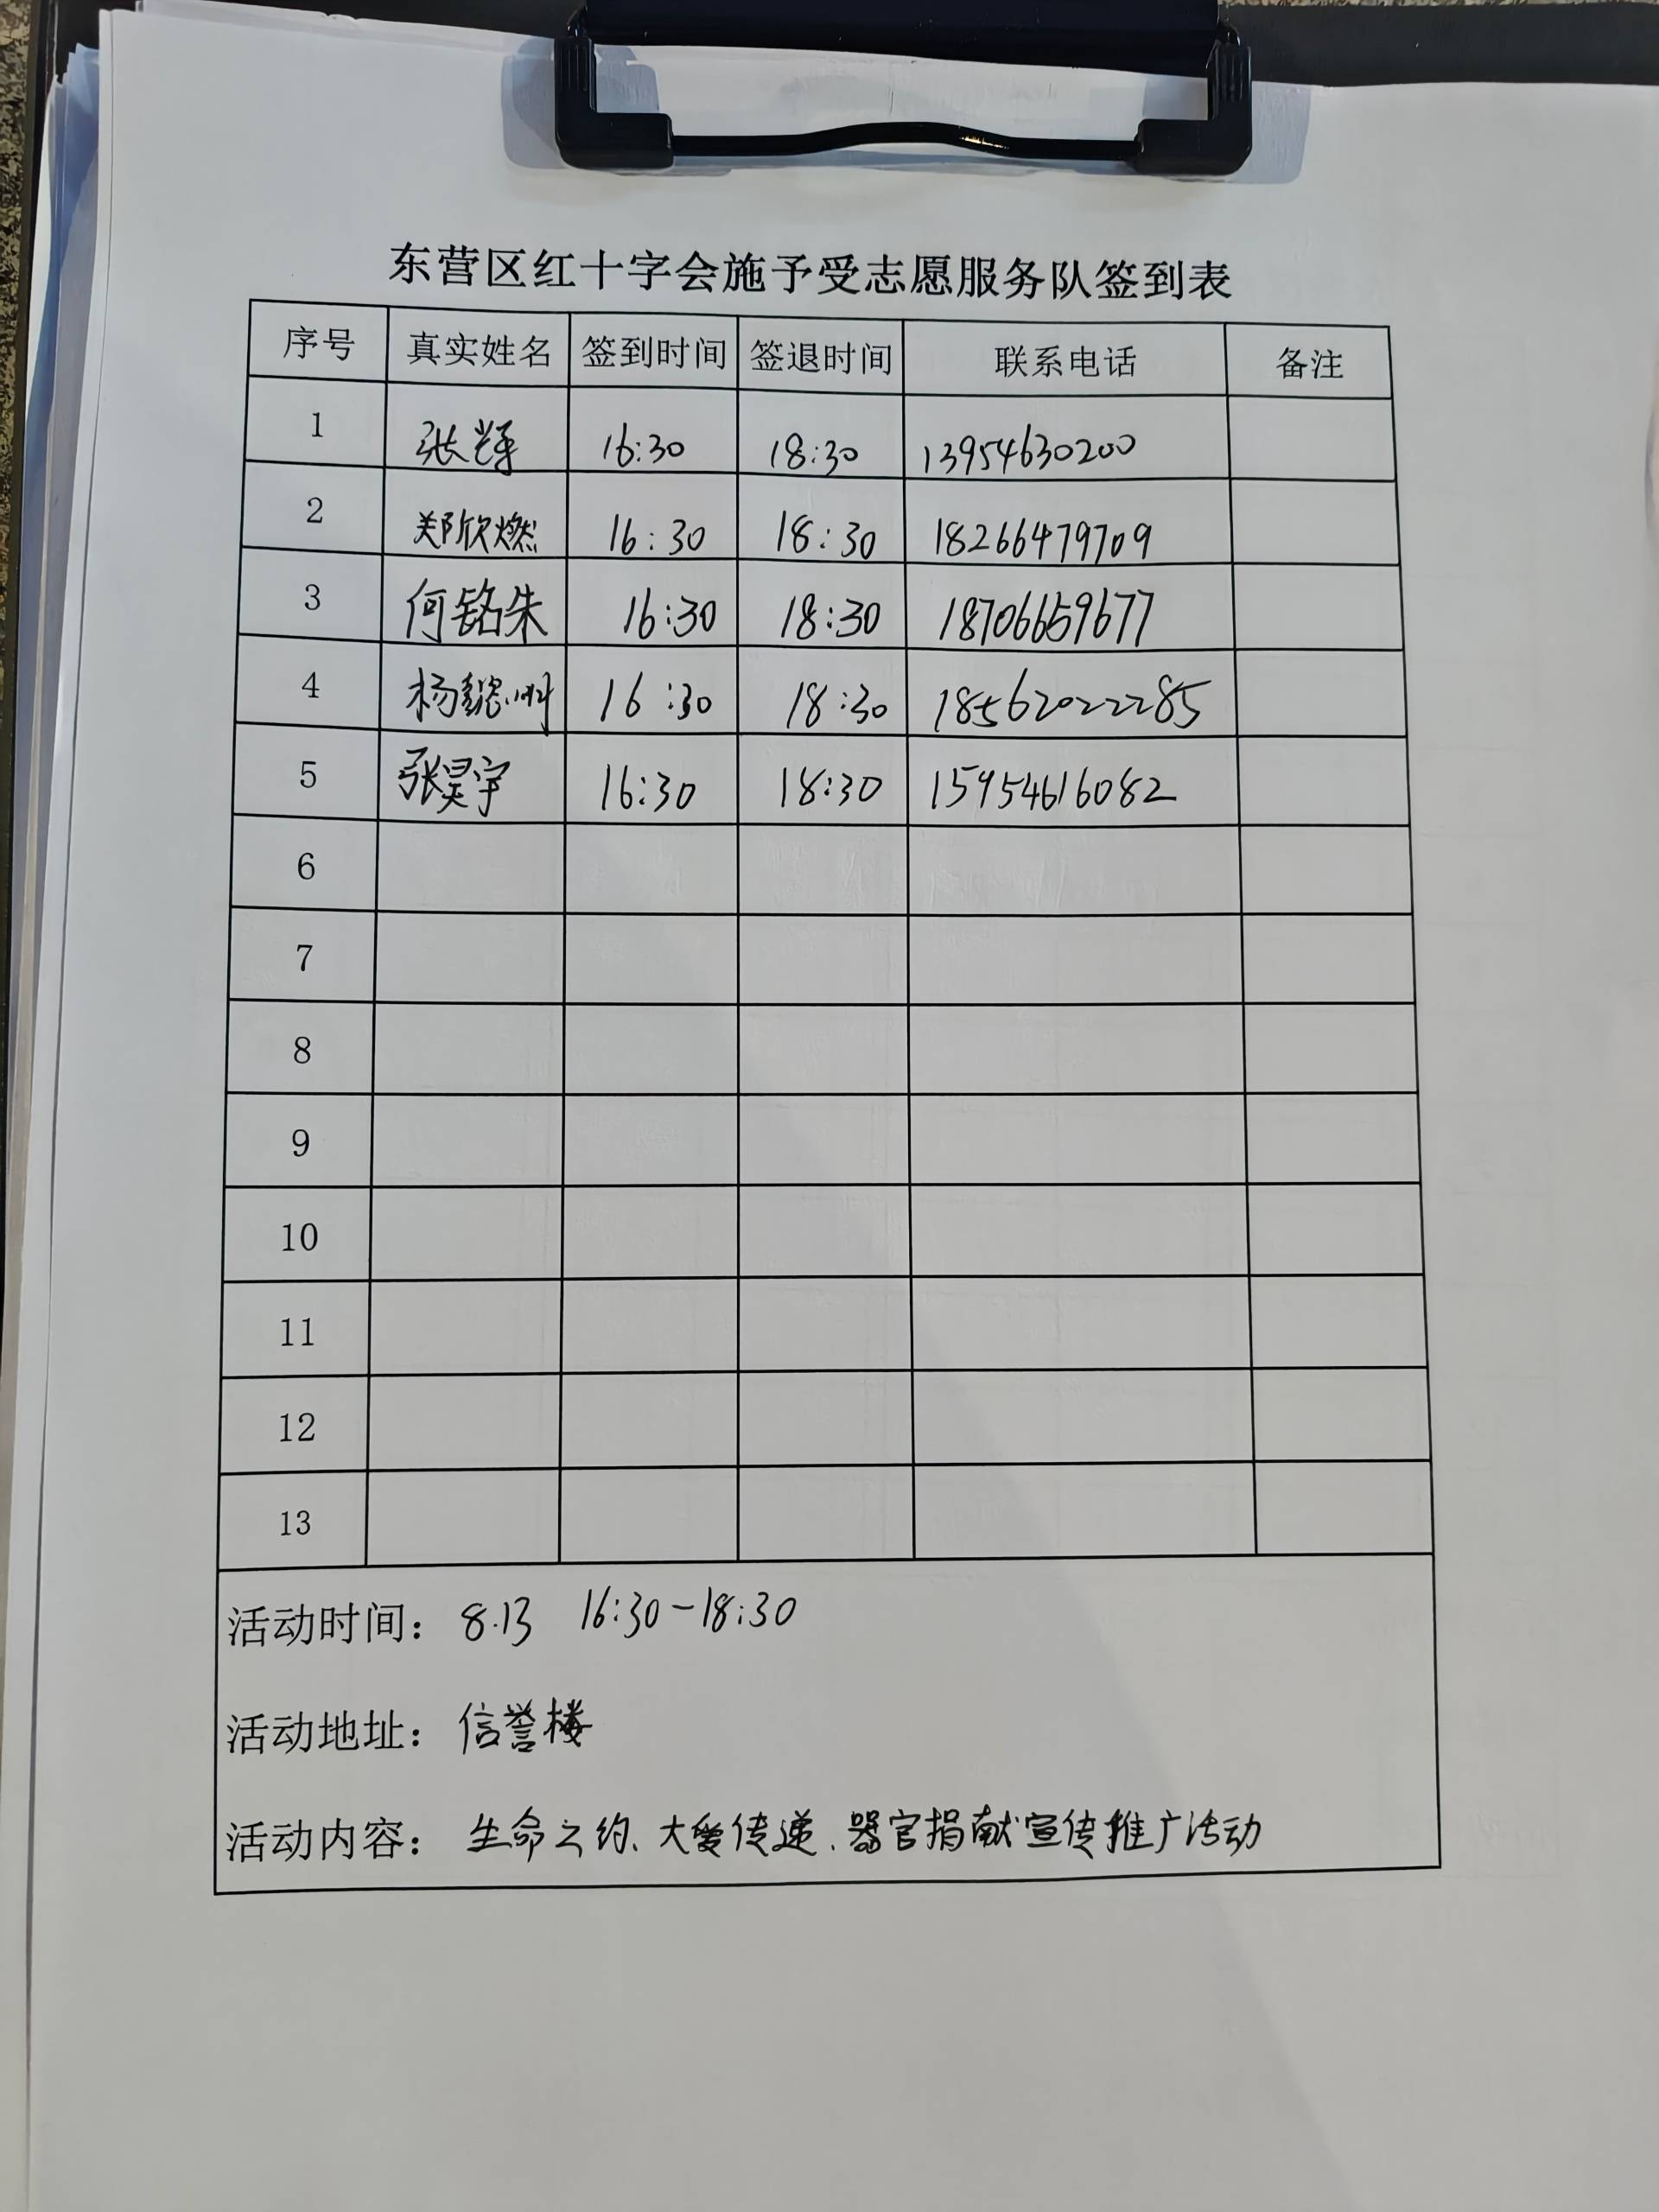 东营区红十字会施予受志愿服务队签到表
序号 真实姓名 签到时间 签退时间 联系电话 备注
1 张辉 16:30 18:30 13954630200
2 郑欣燃 16:30 18:30 18266479709
3 何铭朱 16:30 18:30 18706659677
4 杨 16:30 18:30 18562022285
5 张昊宇 16:30 18:30 15954616082
6
7
8
9
10
11
12
13
活动时间: 8.13 16:30-18:30
活动地址: 信誉楼
活动内容: 生命之约、大爱传递、器官捐献宣传推广活动